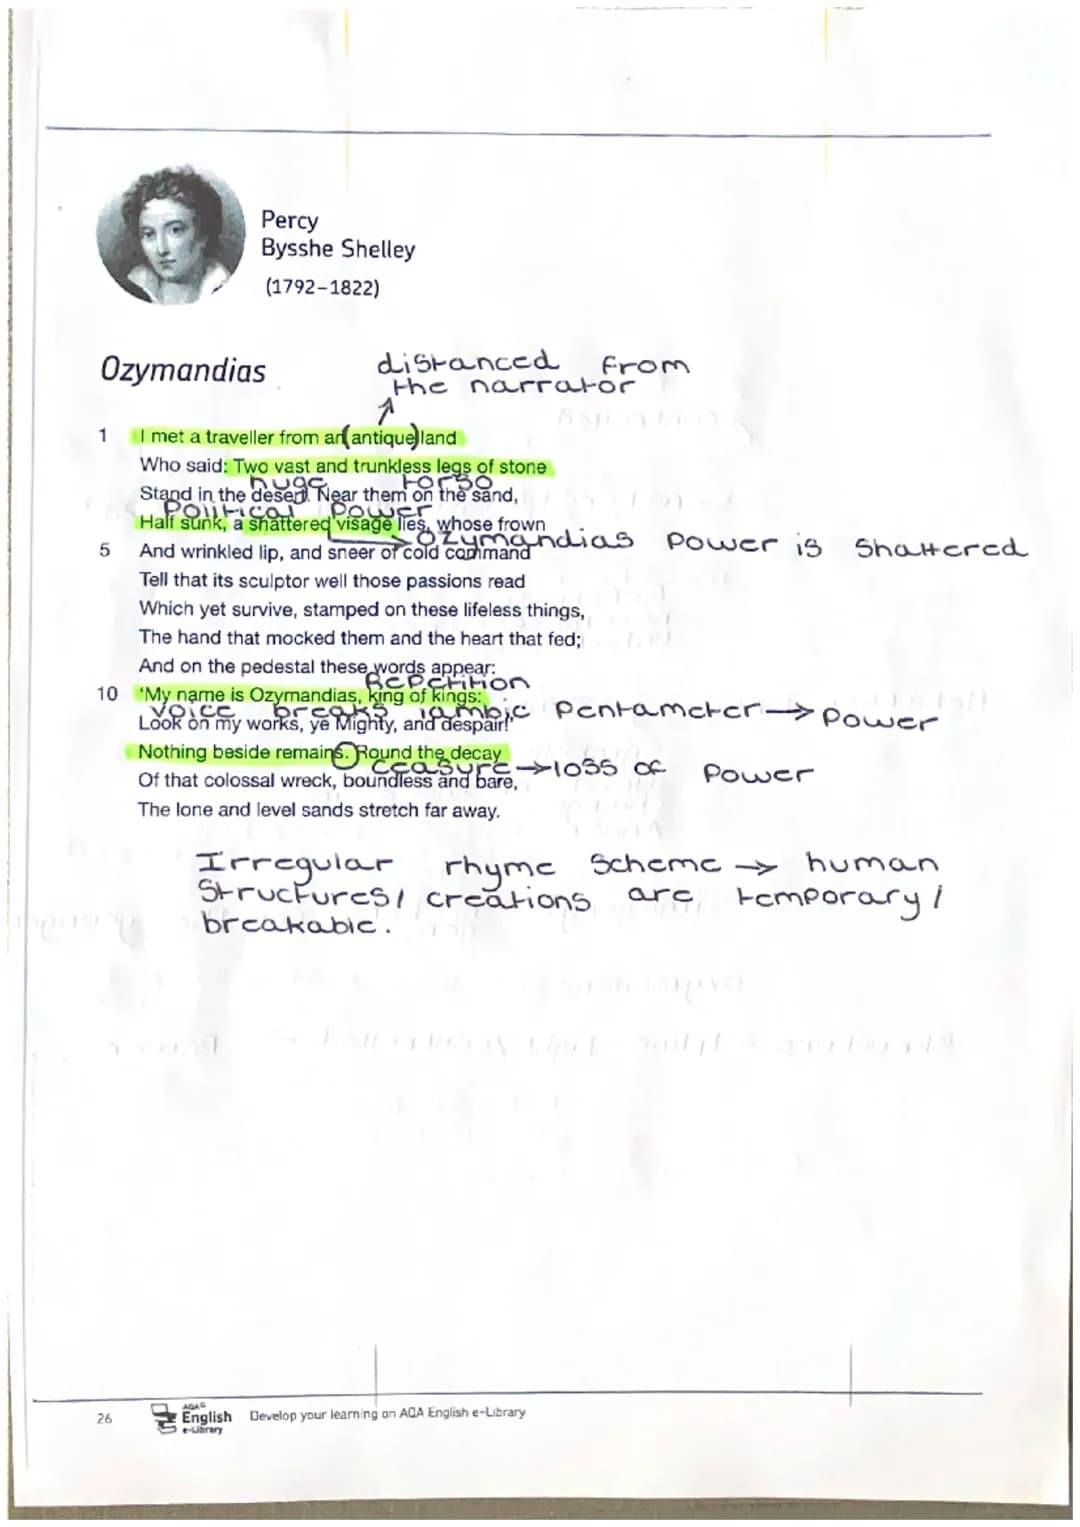 Percy
Bysshe Shelley
(1792–1822)
Ozymandias
distanced from
the narrator
1 I met a traveller from an antique land
Who said: Two vast and trunkless legs of stone
huge torso
Stand in the desert. Near them on the sand,
Political Power
Half sunk, a shattered visage lies, whose frown
Ozymandias power is shattered
5 And wrinkled lip, and sneer of cold command
Tell that its sculptor well those passions read
Which yet survive, stamped on these lifeless things,
The hand that mocked them and the heart that fed;
And on the pedestal these words appear:
Repetition
10 'My name is Ozymandias, king of kings:
voice breaks iambic pentameter → power
Look on my works, ye Mighty, and despair!'
Nothing beside remains. Round the decay
ceasure → loss of power
Of that colossal wreck, boundless and bare,
The lone and level sands stretch far away.
Irregular rhyme scheme → human
structures/ creations are temporary/
breakable.
26 AQA English e-Library Develop your learning on AQA English e-Library